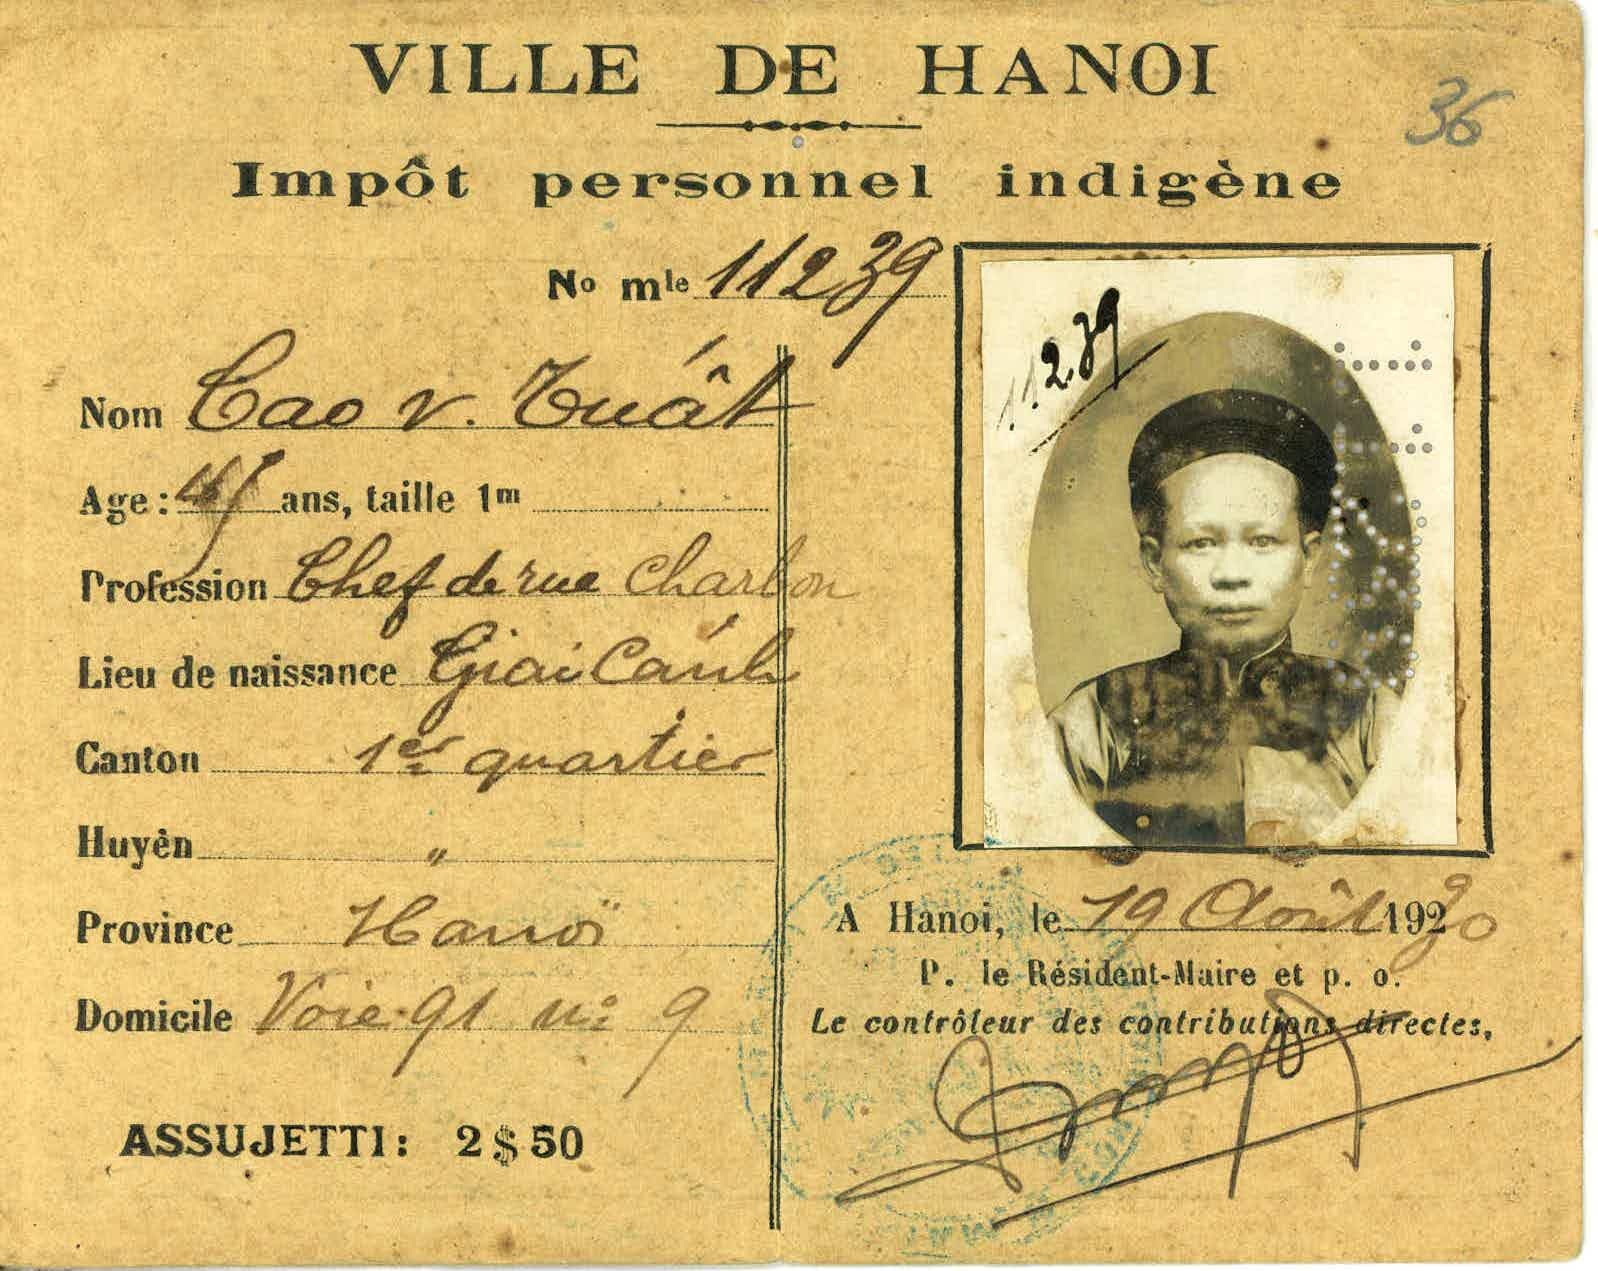 VILLE DE HANOI
36
Impôt personnel indigène
No mle 11239
11.2.39
Nom Cao v. Tuất
Age : ans, taille 1m
Profession Chef de rue Charbon
Lieu de naissance Giai Cảnh
Canton 1er quartier
Huyện "
Province Hanoï
Domicile Voie 91 no: 9
ASSUJETTI: 2$50
A Hanoi, le 19 Août 1920
P. le Résident-Maire et p. o.
Le contrôleur des contributions directes,